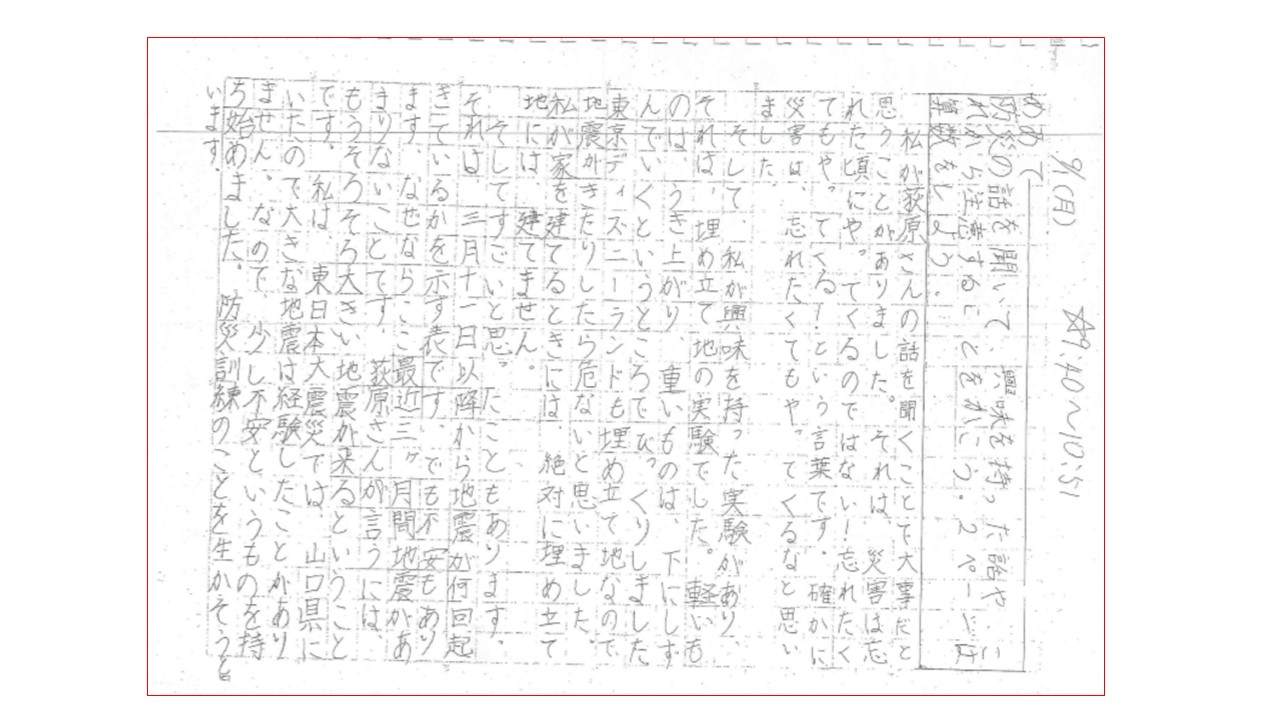 9/(月) ☆9:40〜10:51
めあて
防災の話を聞いて、興味を持った話や、こ
れから注意することをかこう。2ページは
算数をしよう。
私が荻原さんの話を聞くことで大事だと
思うことがありました。それは、災害は忘
れた頃にやってくるのではない!忘れたく
てもやってくる!という言葉です。確かに
災害は、忘れたくてもやってくるなと思い
ました。
そして、私が興味を持った実験があり、
それは、埋め立て地の実験でした。軽いも
のは、うき上がり、重いものは、下にしず
んでいくというところでびっくりしました
東京ディズニーランドも埋め立て地なので
地震がきたりしたら危ないと思いました。
私が家を建てるときには、絶対に埋め立て
地には、建てません。
そしてすごいと思ったこともあります。
それは、三月十一日以降から地震が何回起
きているかを示す表です。でも不安もあり
ます。なぜならここ最近三ヶ月間地震があ
まりないことです。荻原さんが言うには、
もうそろそろ大きい地震が来るということ
です。私は、東日本大震災では、山口県に
いたので大きな地震は経験したことがあり
ません。なので、少し不安というものを持
ち始めました。防災訓練のことを生かそうと
います。